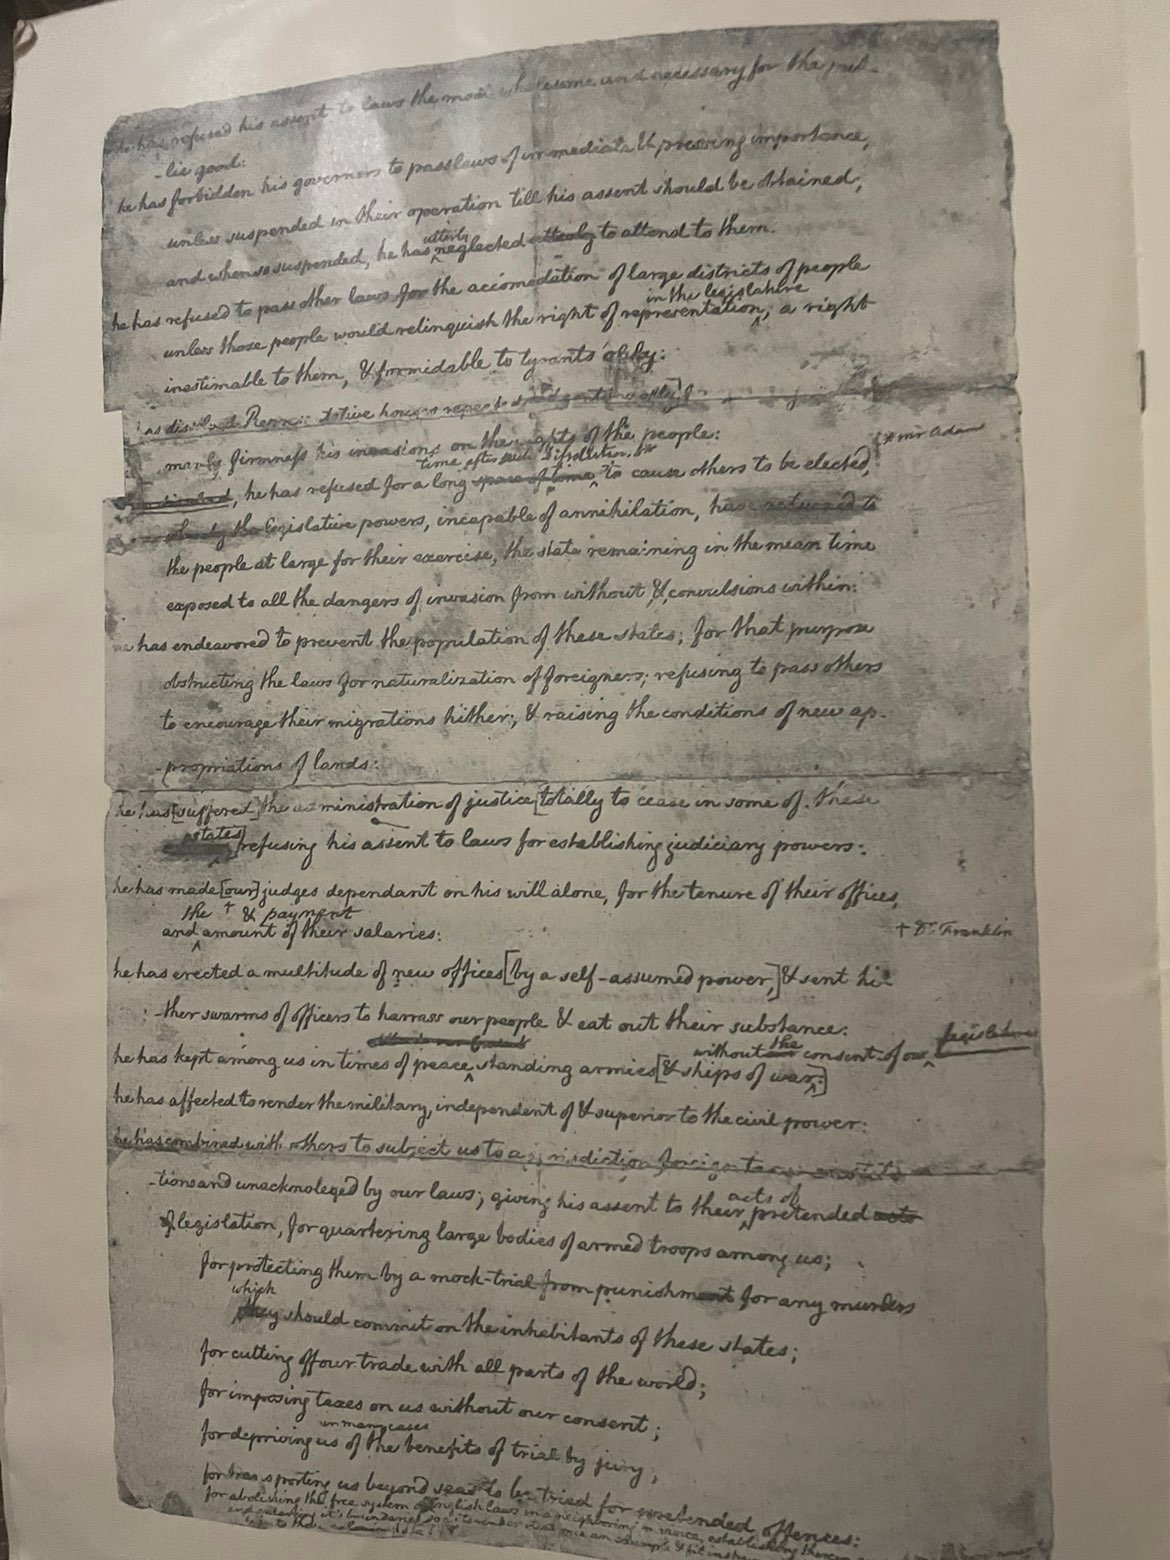 he has refused his assent to laws the most wholesome and necessary for the pub-
-lic good:
he has forbidden his governors to pass laws of immediate & pressing importance,
unless suspended in their operation till his assent should be obtained,
utterly
and when so suspended, he has neglected utterly to attend to them.
he has refused to pass other laws for the accomodation of large districts of people
in the legislature
unless those people would relinquish the right of representation, a right
inestimable to them, & formidable to tyrants only:
has dissolved Representative houses repeatedly & continually] for
manly firmness his invasions on the rights of the people:
* mr Adams
time after such Dissolutions *
he has refused for a long space of time, to cause others to be elected,
whereby the legislative powers, incapable of annihilation, have returned to
the people at large for their exercise, the state remaining in the mean time
exposed to all the dangers of invasion from without & convulsions within:
he has endeavored to prevent the population of these states; for that purpose
obstructing the laws for naturalization of foreigners; refusing to pass others
to encourage their migrations hither; & raising the conditions of new ap-
-propriations of lands:
he has [suffered] the administration of justice [totally to cease in some of these
states]
refusing his assent to laws for establishing judiciary powers:
he has made [our] judges dependant on his will alone, for the tenure of their offices,
the † & payment
and amount of their salaries:
† Dr. Franklin
he has erected a multitude of new offices [by a self-assumed power,] & sent hi-
-ther swarms of officers to harrass our people & eat out their substance:
without the consent of our legislatures
he has kept among us in times of peace, standing armies [& ships of war:]
he has affected to render the military, independent of & superior to the civil power:
he has combined with others to subject us to a jurisdiction foreign to our constitu-
acts of
-tions and unacknoleged by our laws; giving his assent to their pretended acts
of legislation, for quartering large bodies of armed troops among us;
for protecting them by a mock-trial from punishment for any murders
which
they should commit on the inhabitants of these states;
for cutting off our trade with all parts of the world;
for imposing taxes on us without our consent;
in many cases
for depriving us of the benefits of trial by jury;
for transporting us beyond seas to be tried for pretended offences:
for abolishing the free system of English laws in a neighboring province, establishing therein
and enlarging it's boundaries so as to render it at once an example & fit